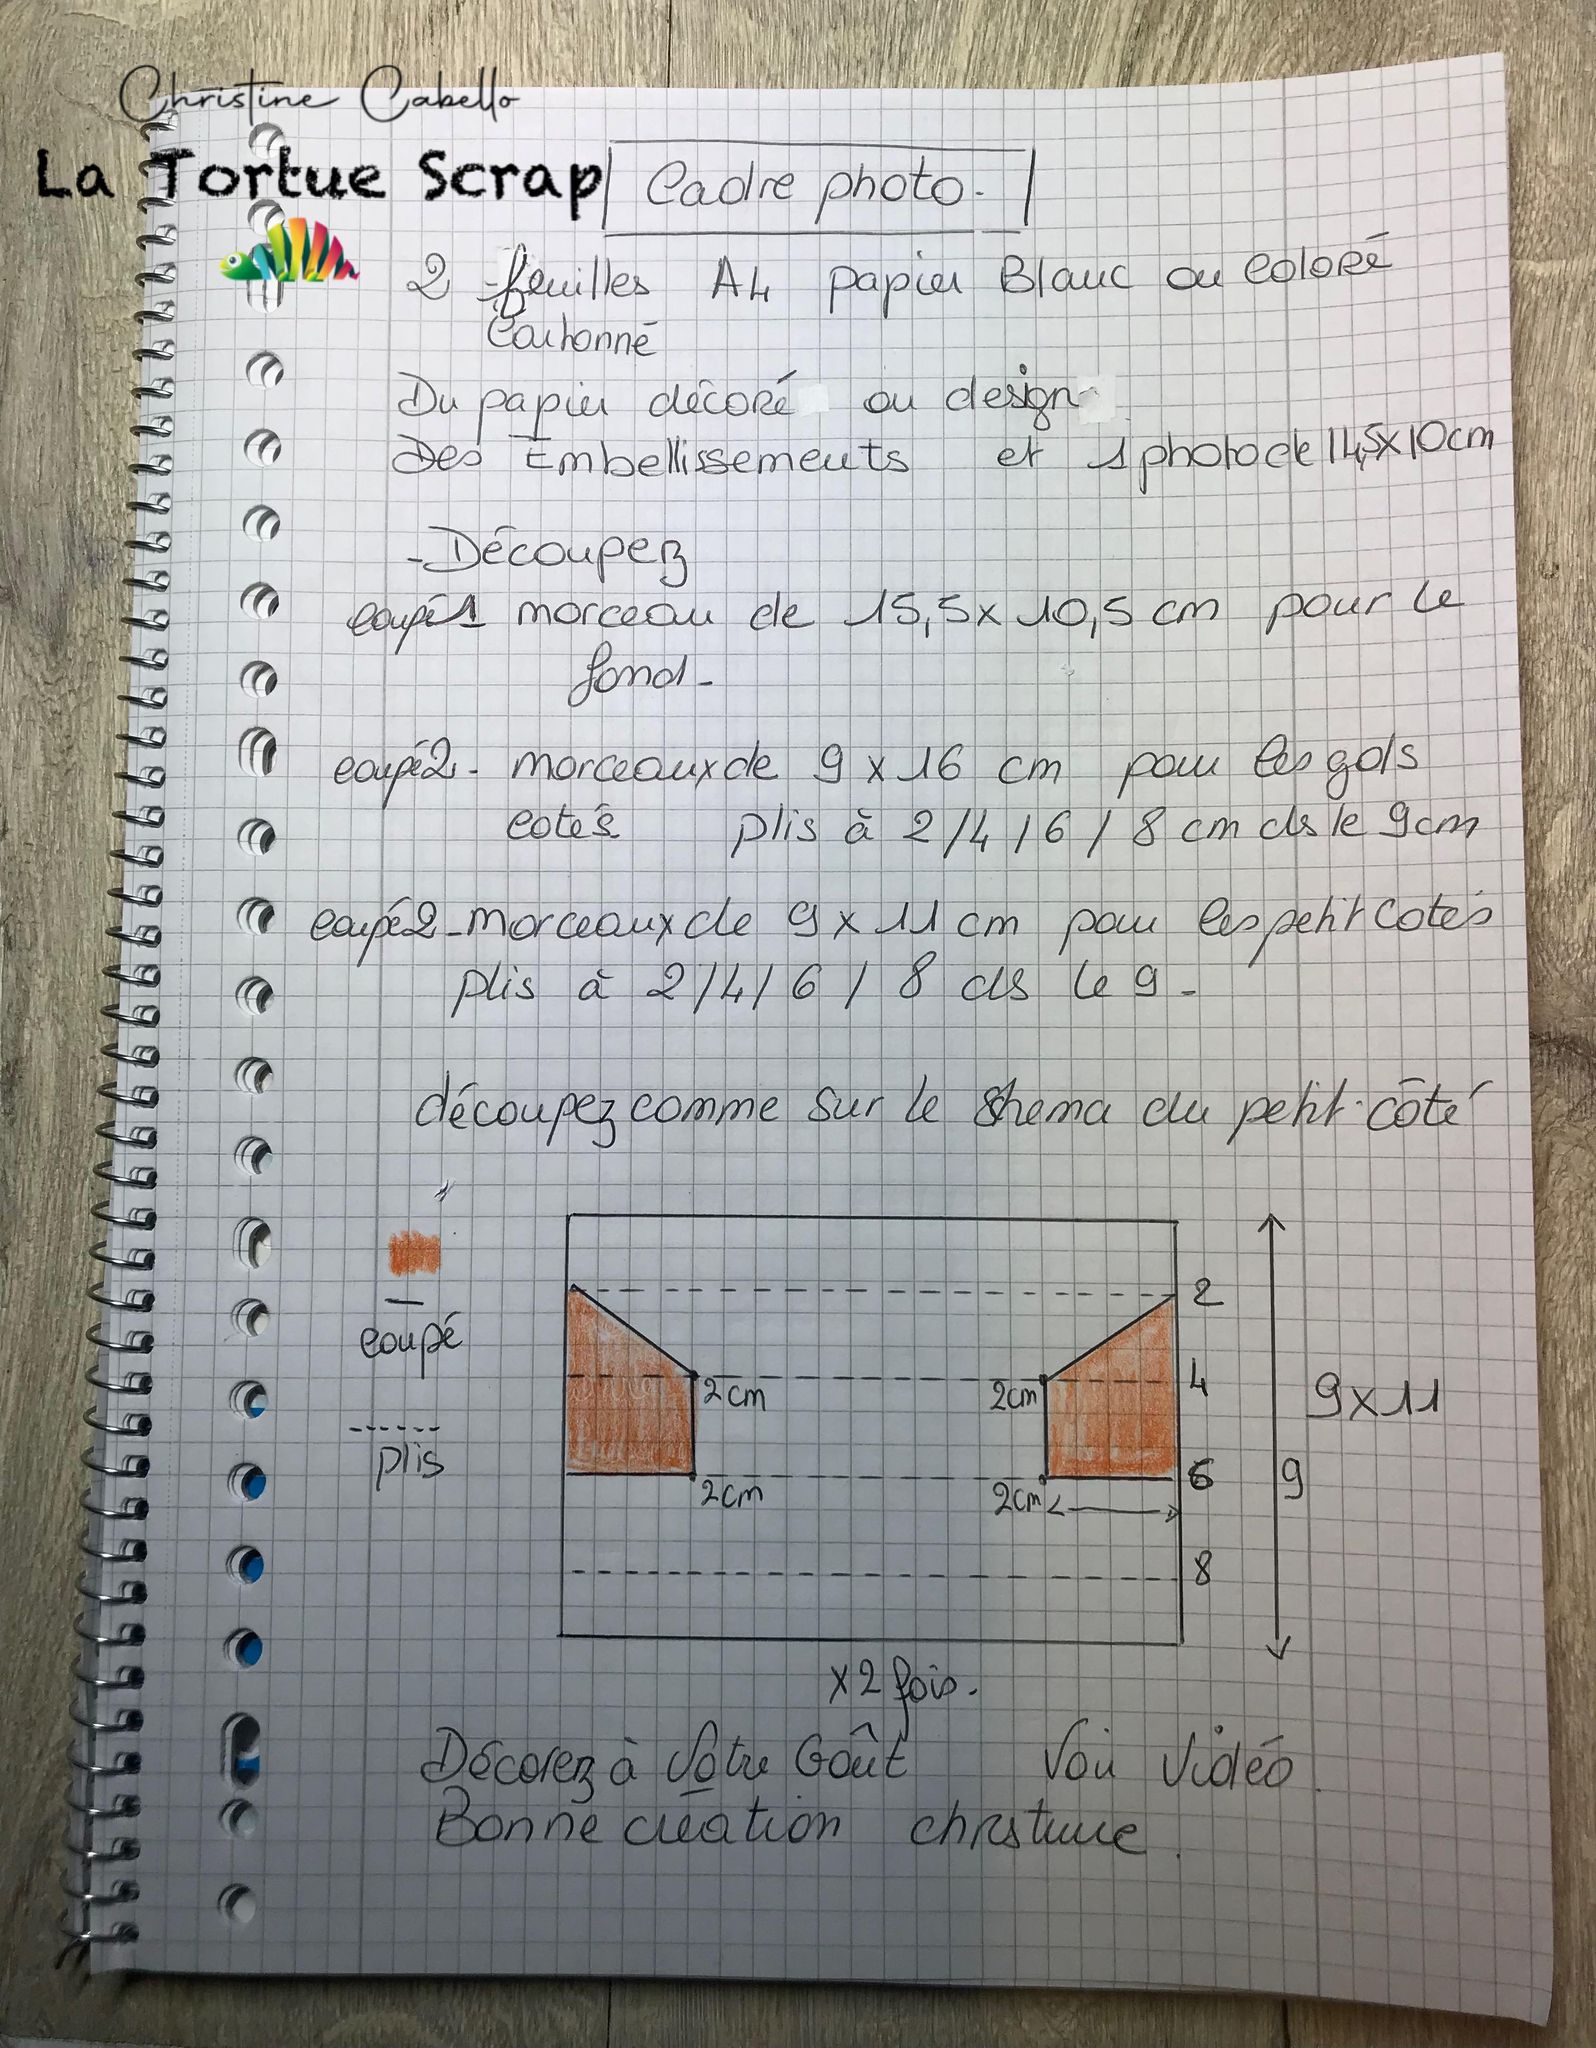 Christine Cabello
La Tortue Scrap
Cadre photo.
2 feuilles A4 papier Blanc ou Coloré
Cartonné
Du papier décoré ou design
Des Embellissements et 1 photo de 14,5x10cm
- Découpez
coupé 1 morceau de 15,5 x 10,5 cm pour le
fond -
coupé 2 - morceaux de 9 x 16 cm pour les gds
cotés plis à 2/4/6/8 cm ds le 9cm
coupé 2 - morceaux de 9 x 11 cm pour les petit cotés
plis à 2/4/6/8 ds le 9 -
découpez comme sur le shema du petit côté
coupé
plis
2
4
6
8
2cm
2cm
2cm
2cm
9
9x11
x2 fois.
Décorez à Votre Goût Voir Vidéo.
Bonne création christine.